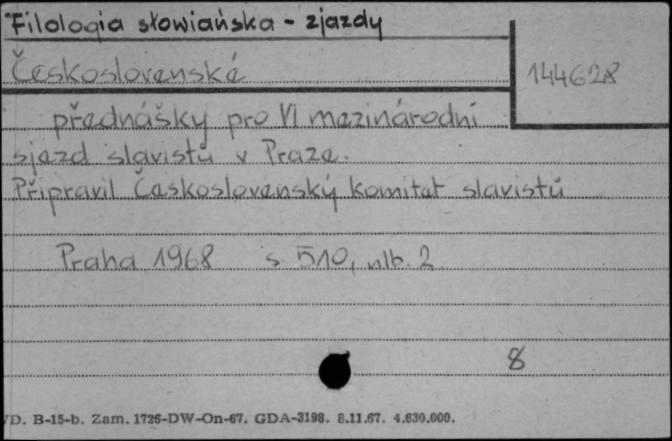 Filologia słowiańska - zjazdy
Československé
144628
přednášky pro VI mezinárodní
sjezd slavistů v Praze.
Připravil Československý komitét slavistů
Praha 1968 s. 510, nlb. 2
8
D. B-15-b. Zam. 1726-DW-On-67. GDA-3198. 8.11.67. 4.630.000.